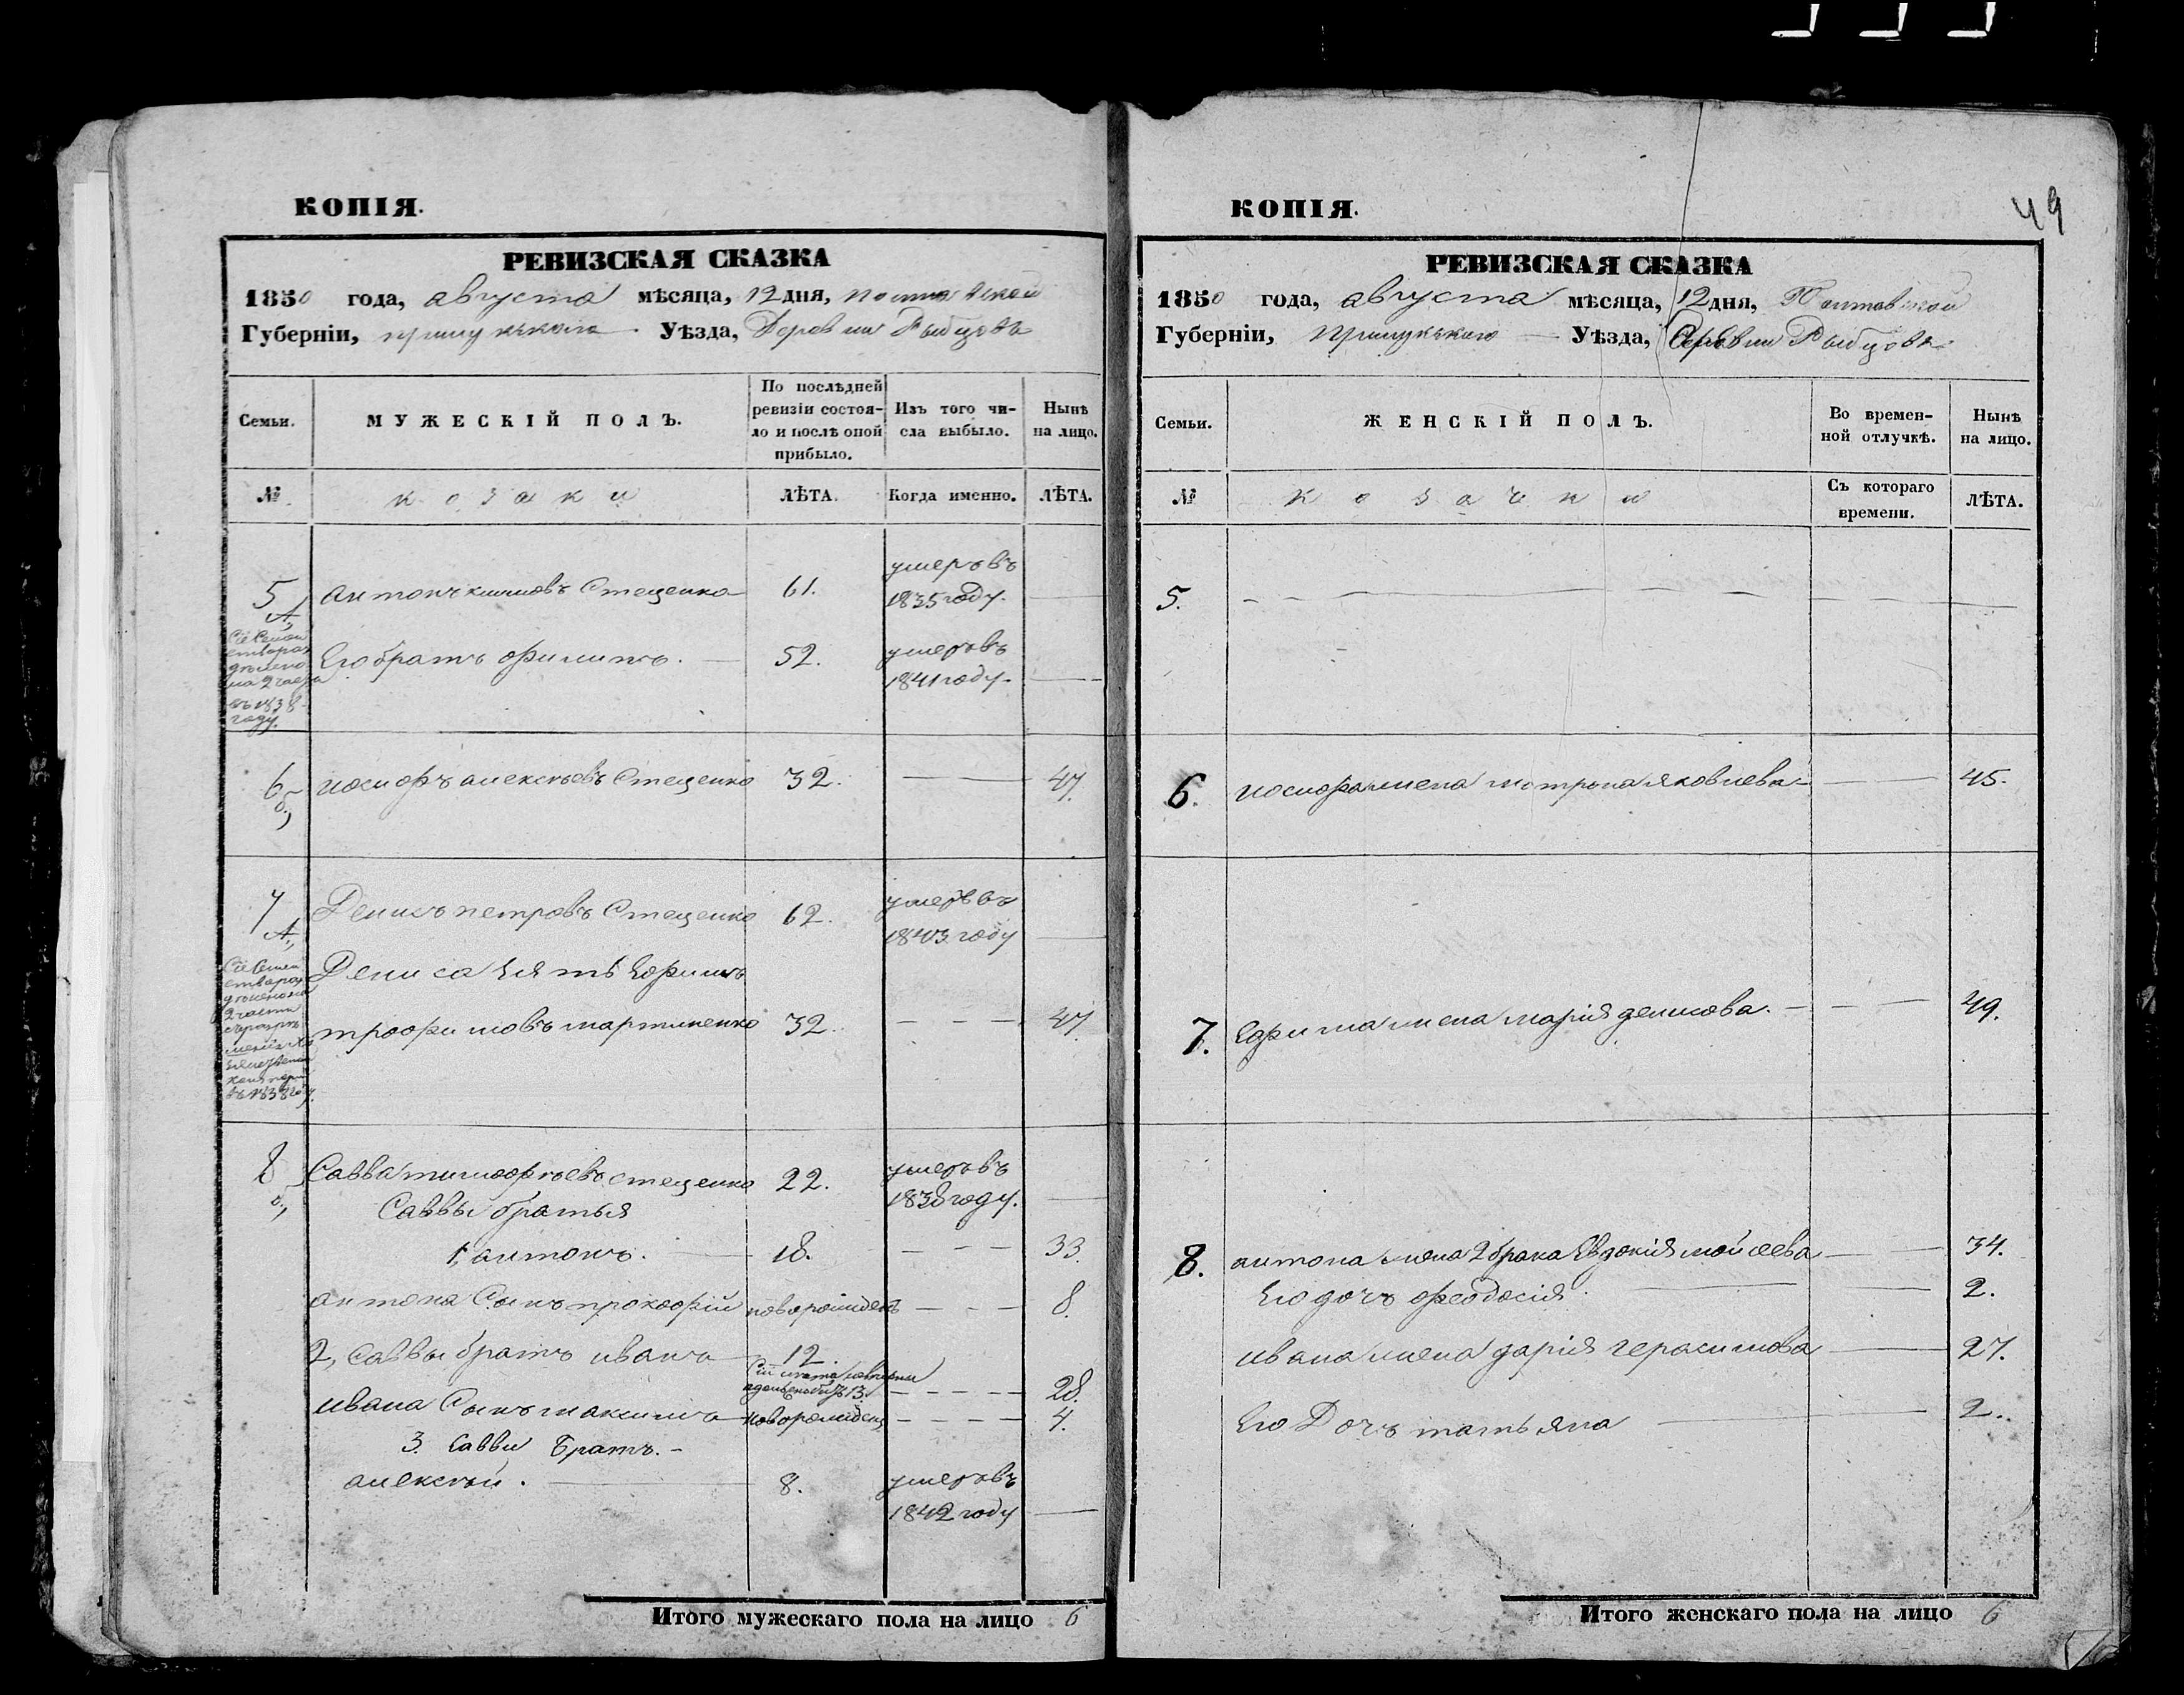 КОПІЯ.
РЕВИЗСКАЯ СКАЗКА
1850 года, августа мѣсяца, 12 дня, полтавской
Губерніи, прилуцкаго Уѣзда, Деревни Рыбцовъ
Семьи.
МУЖЕСКІЙ ПОЛЪ.
По послѣдней ревизіи состоя-
ло и послѣ оной прибыло.
Изъ того чи-
сла выбыло.
Нынѣ
на лицо.
№
козаки
ЛѢТА.
Когда именно.
ЛѢТА.
5 А,
антонъ Стеценко 61. умеръ въ
1835 году. —
Сіе Семей
ство раз
дѣлено
на 2 часта
въ 1838
году.
Его братъ филипъ. — 52. умеръ въ
1841 году. —
6 б,
иосифъ алексѣевъ Стеценко 32. — 47.
7 А,
Денисъ петровъ Стеценко 62. умеръ въ
1843 году —
Сіе Семей
ство раз
дѣлено на
2 части
въ 1838 году.
Дениса зять Ефимъ
трофимовъ мартиненко 32. - - - 47
8 б,
Савва тимофѣевъ стеценко 22. умеръ въ
1838 году. —
Саввы братья
1, антонъ. — 18. - - - 33
антона Сынъ прокофій новорожденъ - - - 8.
2, Саввы братъ иванъ 12.
Сій
13. - - - - 28.
ивана Сынъ максимъ новорожденъ - - - - 4.
3. Саввы Братъ. -
алексѣй. — 8. умеръ въ
1842 году —
Итого мужескаго пола на лицо 6
49
КОПІЯ.
РЕВИЗСКАЯ СКАЗКА
1850 года, августа мѣсяца, 12 дня, Полтавской
Губерніи, Прилуцкаго — Уѣзда, Деревни Рыбцовъ
Семьи.
ЖЕНСКІЙ ПОЛЪ.
Во времен-
ной отлучкѣ.
Нынѣ
на лицо.
№
Козачки
Съ котораго
времени.
ЛѢТА.
5. - - - -
6. иосифа жена мотрона яковлева — 45.
7. Ефима жена марія денисова. - - - 49.
8. антона жена 2 брака Евдокія мойсева — 34.
Его дочъ феодосія. — 2.
ивана жена дарія герасимова — 27.
Его Дочъ татьяна — 2.
Итого женскаго пола на лицо 6